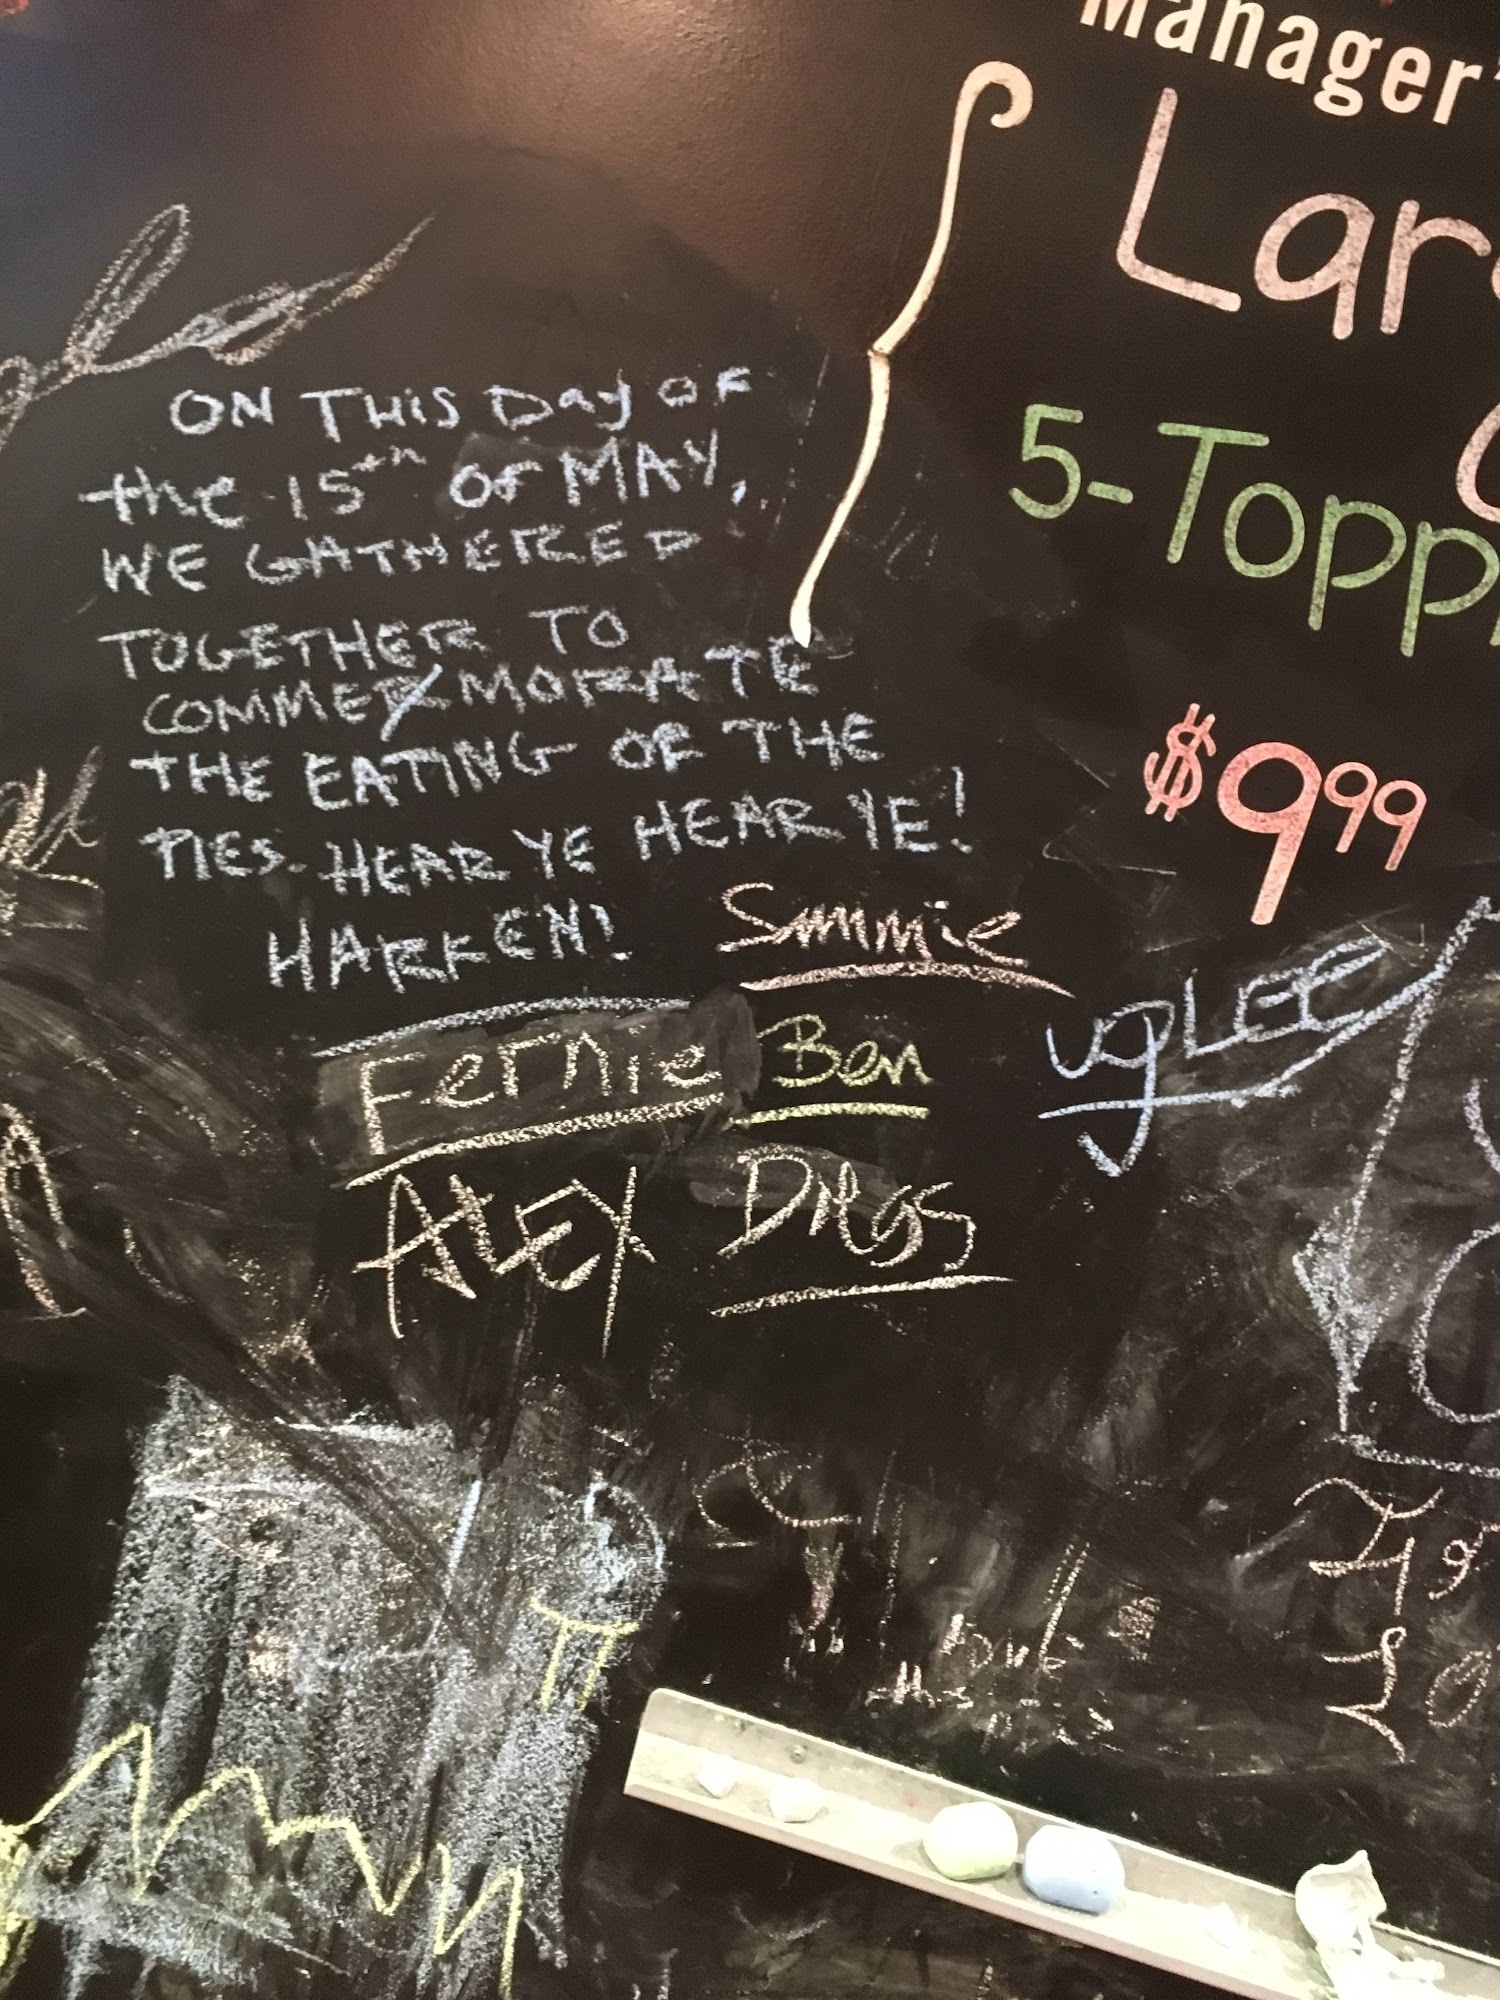 Manager'
Lar
5-Topp
$9.99
ON THIS Day OF
the 15th OF MAY,
WE GATHERED
TOGETHER TO
COMMEMORATE
THE EATING OF THE
PIES. HEAR YE HEAR YE!
HARKEN!
Sammie
Fernie Ben
UGLEE
ALEX